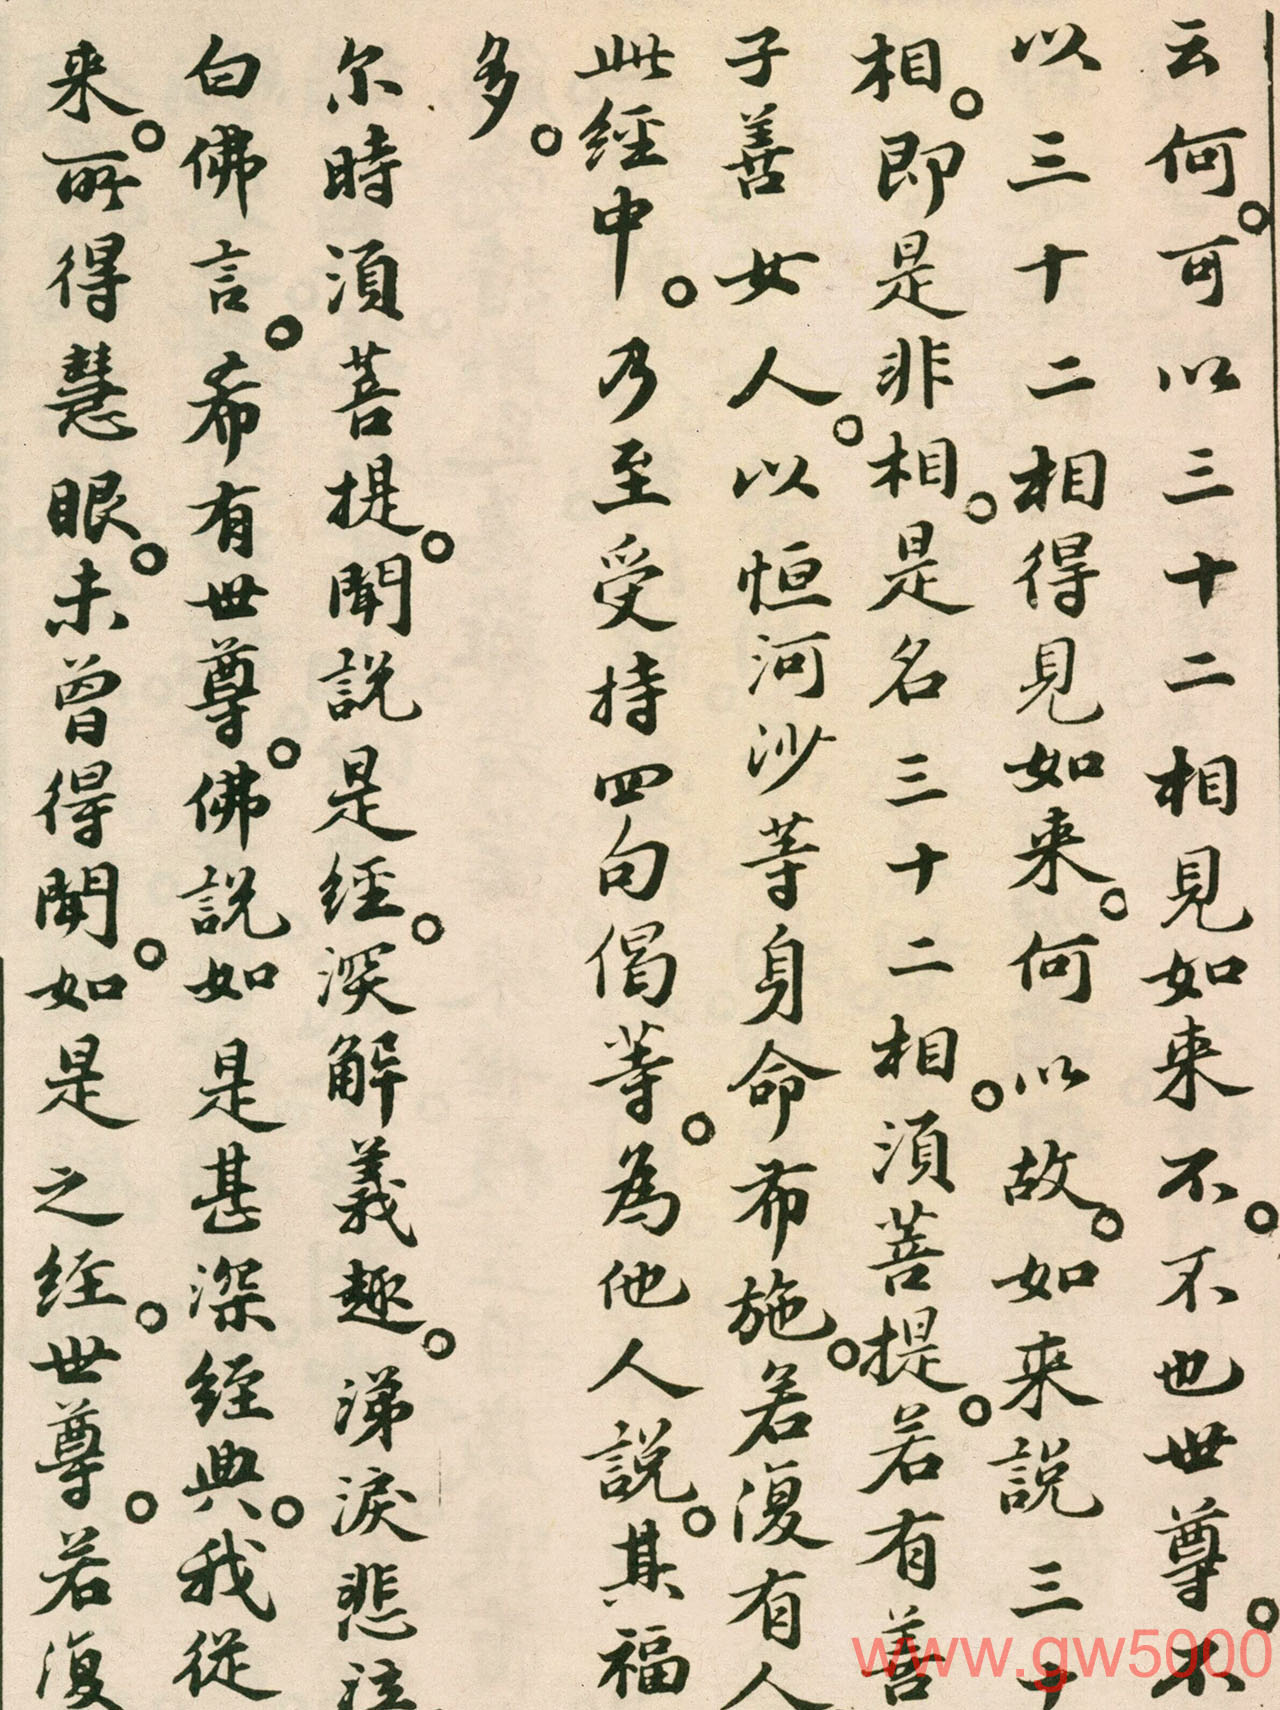 云何。可以三十二相見如来不。不也世尊。不
以三十二相得見如来。何以故。如来説三十
相。即是非相。是名三十二相。須菩提。若有善
子善女人。以恒河沙等身命布施。若復有人
此經中。乃至受持四句偈等。為他人説。其福
多。
尔時須菩提。聞説是經。深解義趣。涕淚悲泣
白佛言。希有世尊。佛説如是甚深經典。我從
来。所得慧眼。未曾得聞。如是之經。世尊。若復
www.gw5000